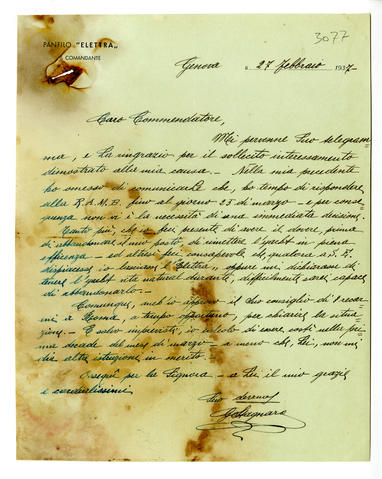 3077
PANFILO "ELETTRA"
COMANDANTE
Genova a 27 febbraio 1937-
Caro Commendatore,
Mi pervenne Suo telegram-
ma, e La ringrazio per il sollecito interessamento
dimostrato alla mia causa. - Nella mia precedente
ho omesso di comunicarLe che, ho tempo di rispondere
alla R.A.N.B. fino al giorno 25 di marzo - e per conse-
guenza non vi è la necessità di una immediata decisione.
Tanto più, che io feci presente di avere il dovere, prima
di abbandonare il mio posto, di rimettere l'yacht in piena
efficenza - ed altresì son consapevole che, qualora a S.E.
dispiacesse io lasciassi l'Elettra, oppure mi dichiarasse di
tenere l'yacht vita natural durante, difficilmente sarei capace
di abbandonarlo. -
Comunque, anch'io approvo il Suo consiglio di recar-
mi a Roma, a tempo opportuno, per chiarire la situa-
zione. - E salvo imprevisti, io calcolo di esser costì nella pri-
ma decade del mese di marzo - a meno che, Lei, non mi
dia altre istruzioni in merito.
Ossequi per la Signora - a Lei il mio grazie
e cordialissimi
Suo devmo